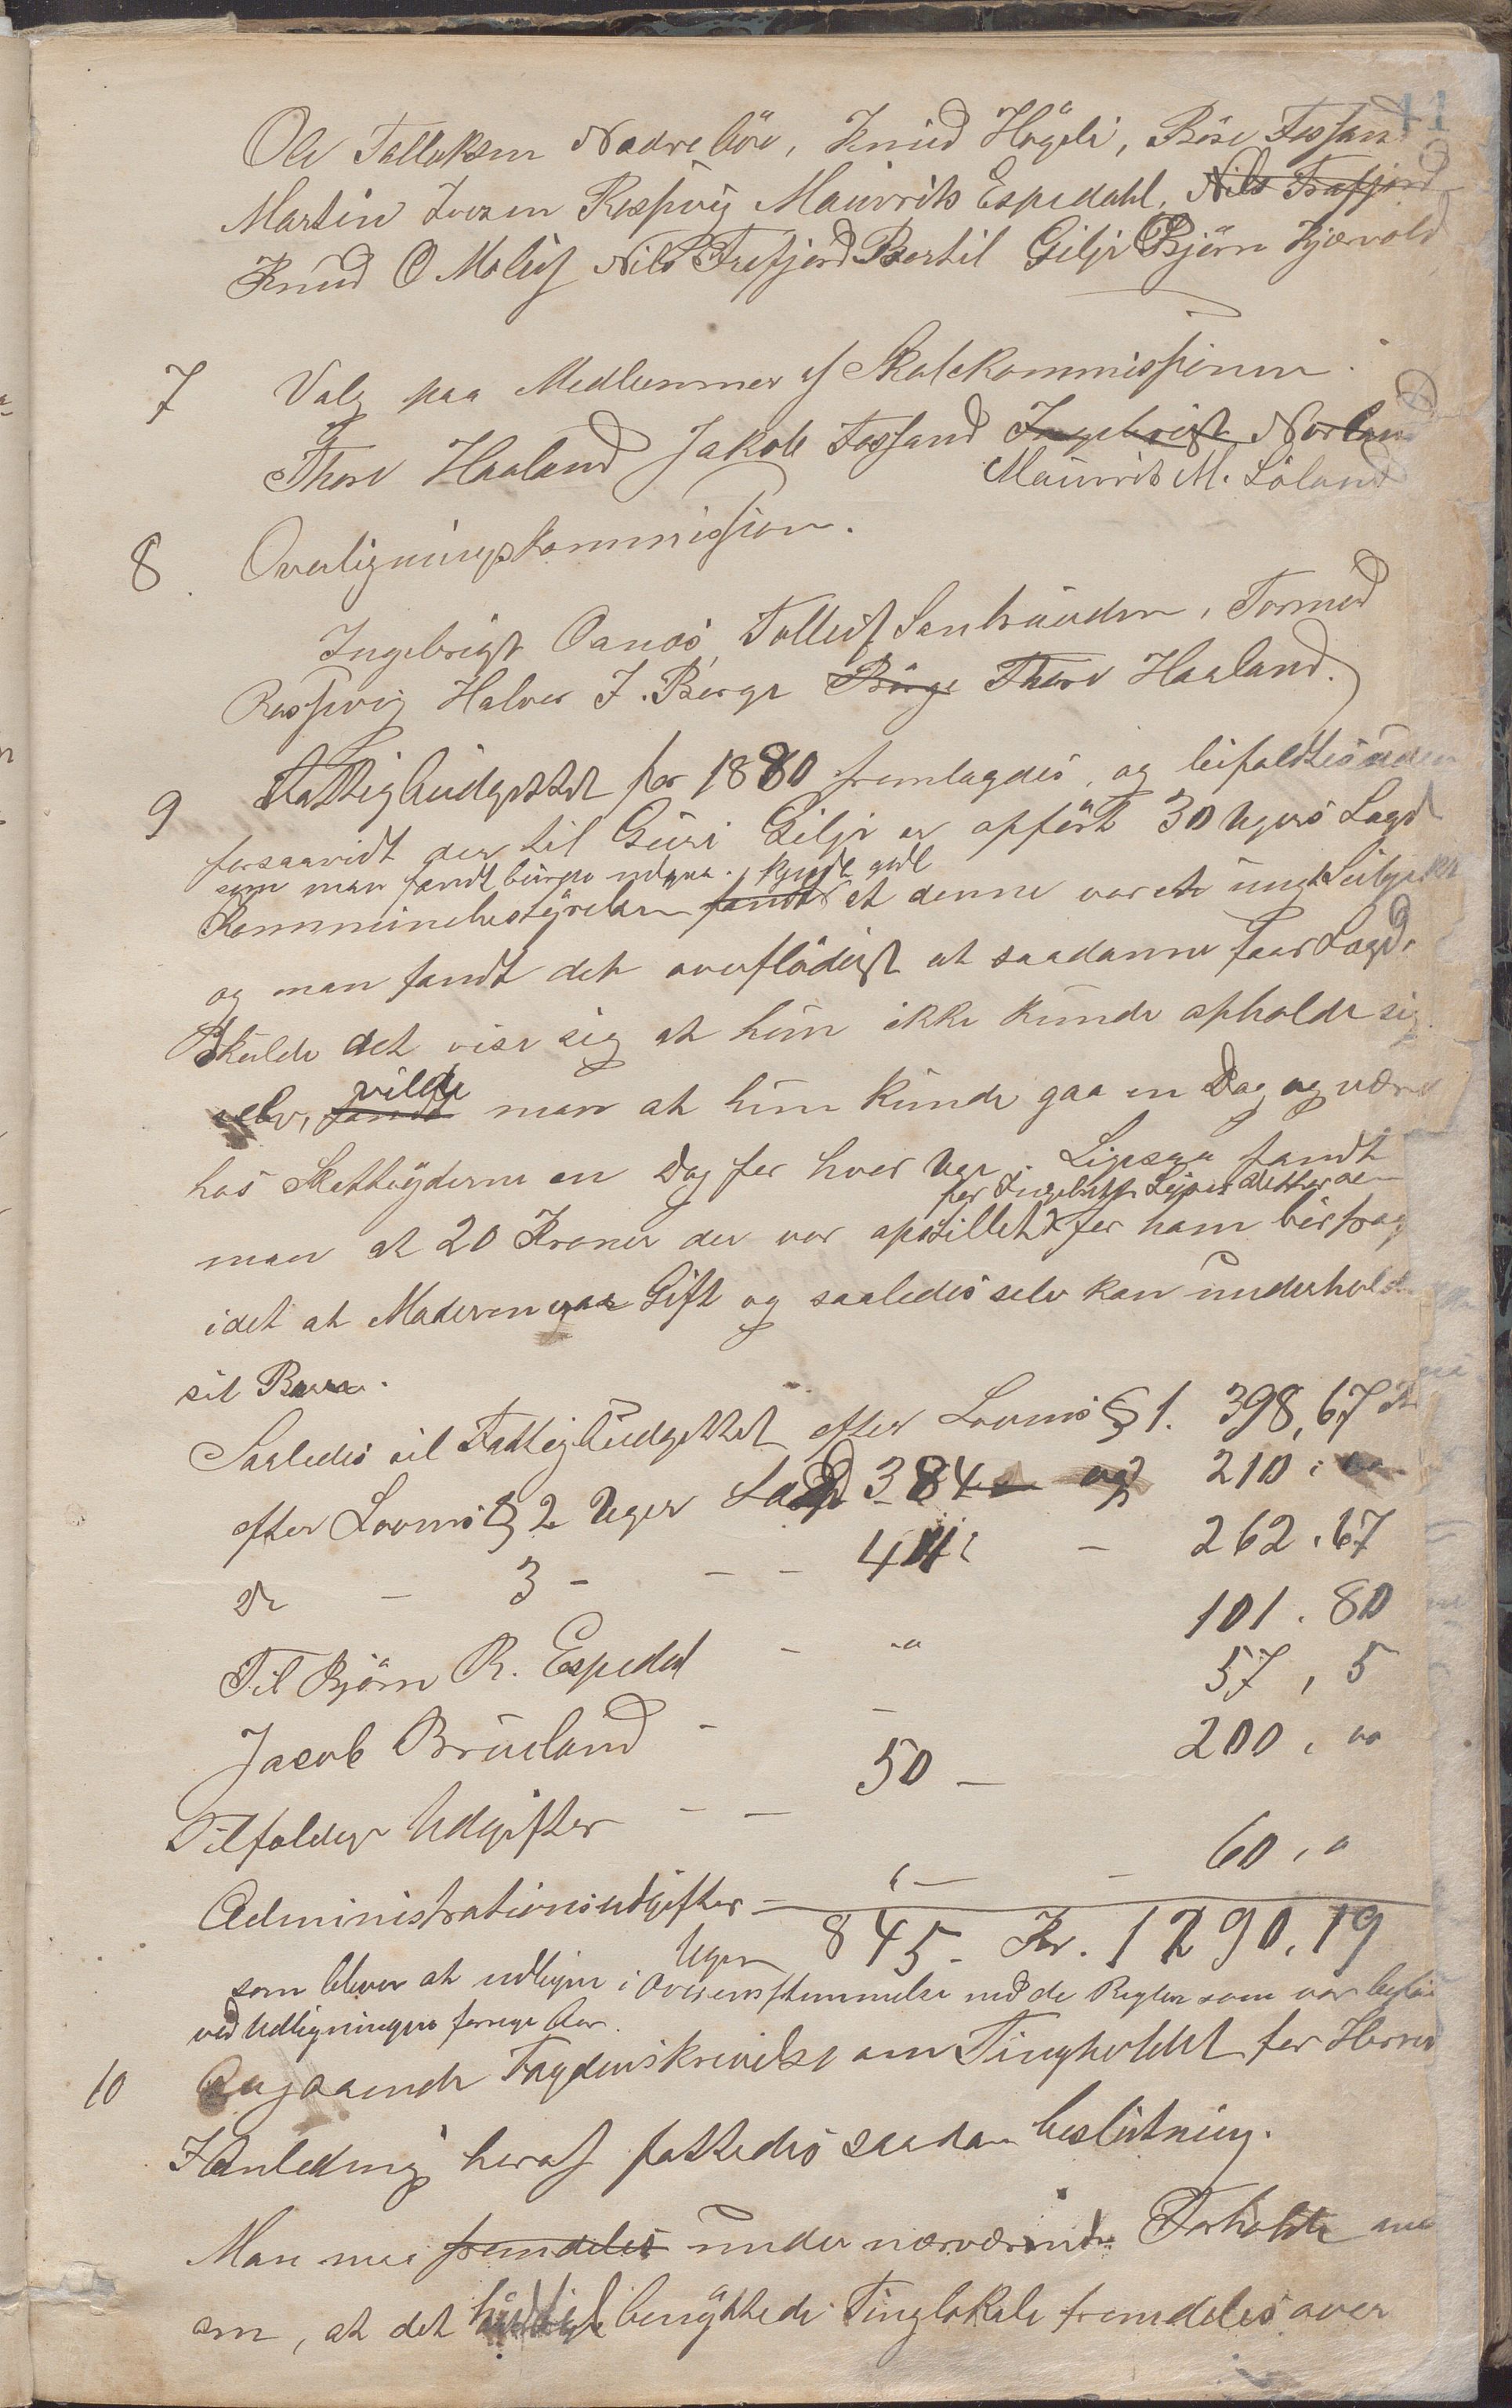 41
Ole Tolleksen Nædrebö, Knud Högeli, Böre Fossan
Martin Iversen Rospvig Mauvrits Espedahl, Nils Frafjord
Knud O Molig Nils Frefjord Bertil Gilje Björn Kjærvold
7 Valg paa Medlemmer af Skolekommissionen.
Thore Haaland Jakob Fossand Ingebrigt Norland
Mauvrits M. Löland
8 Overligningskommission.
Ingebrigt Oanæs, Tolleif Santvinden, Tormod
Rospvig Halvor J. Berge Börge Thore Haaland.
9 Fattigbudgettet for 1880 fremlagdes, og bifaldtes uden
forsaavidt der til Guri Gilje er opfört 30 Ugers Lægd
som man fandt burde udgaa. kjendt godt
Kommunebestyrelsen fandt at denne var et ungt
og man fandt det overflödigt at saadanne faar Lægd.
Skulde det vise sig at hun ikke kunde opholde sig
selv, fandt vilde man at hun kunde gaa en Dag og være
hos Skatteyderne en Dag for hver Uge. Ligesaa fandt
for Ingebrigt
man at 20 Kroner der var opstillet for ham bör
idet at Moderen var Gift og saaledes selv kan underholde
sit Barn.
Saaledes til Fattigbudgettet efter Lovens § 1. 398,67
efter Lovens § 2 Uger Lægd 384 og 210
Do - 3 - - - 411 - 262.67
Til Björn R. Espedal - " 101.80
Jacob Brueland - - 57,5
Tilfældige Udgifter - - 50 - 200,00
Administrationsudgifter - " - - 60,0
Uger 845 - Kr. 1290,19
som bliver at udligne i Overensstemmelse med de Regler som var
ved Udligningen forrige Aar.
10 Angaaende Fogdens skrivelse om Tingholdet for Herred
I Anledning heraf fattedes saadan beslutning.
Man maa fremdeles under nærværende Forholde ans
om, at det hidtil benyttede Tinglokale fremdeles over